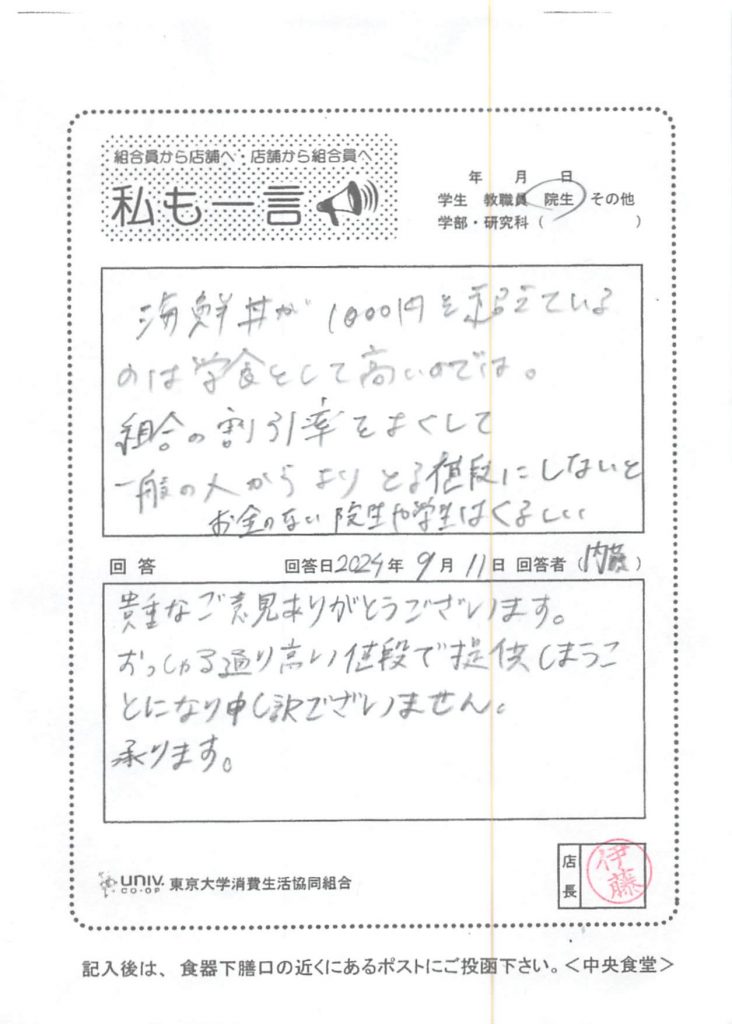 組合員から店舗へ・店舗から組合員へ
私も一言
年 月 日
学生 教職員 院生 その他
学部・研究科( )
海鮮丼が1000円を超えている
のは学食として高いのでは。
組合の割引率をよくして
一般の人からよりとる値段にしないと
お金のない院生や学生はくるしい
回答 回答日2024年9月11日 回答者(内藤)
貴重なご意見ありがとうございます。
おっしゃる通り高い値段で提供しまうこ
とになり申し訳ございません。
承ります。
UNIV. CO-OP 東京大学消費生活協同組合
店長 伊藤
記入後は、食器下膳口の近くにあるポストにご投函下さい。<中央食堂>